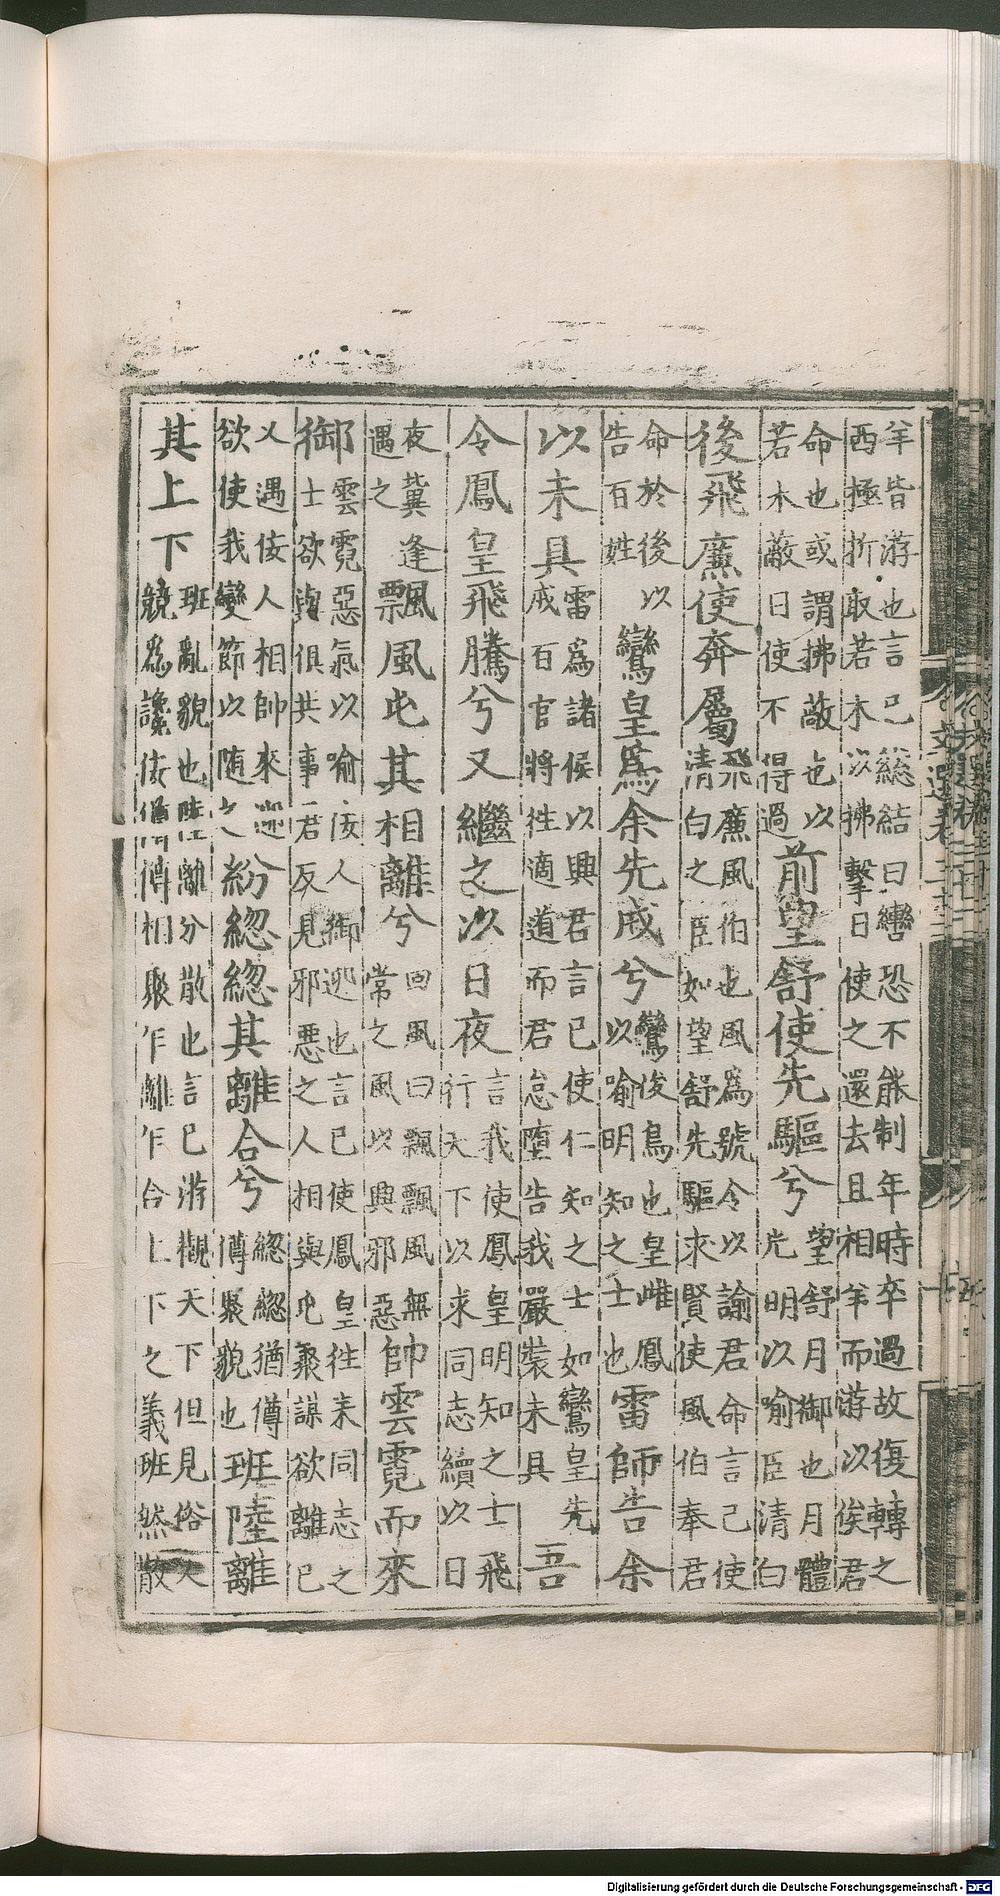 羊皆游也言己緫結日轡恐不能制年時卒過故復轉之
西極折取若木以拂擊日使之還去且相羊而游以俟君
命也或謂拂蔽也以
若木蔽日使不得過
前望舒使先驅兮
望舒月御也月體
光明以喻臣清白
後飛廉使奔屬
飛廉風伯也風爲號令以諭君命言己使
清白之臣如望舒先驅求賢使風伯奉君
命於後以
告百姓
鸞皇爲余先戒兮
鸞俊鳥也皇雌鳳
以喻明知之士也
雷師告余
以未具
雷爲諸候以興君言已使仁知之士如鸞皇先
戒百官將徃適道而君怠墮告我嚴裝未具
吾
令鳳皇飛騰兮又繼之以日夜
言我使鳳皇明知之士飛
行天下以求同志續以日
夜冀逢
遇之
飄風屯其相離兮
回風曰飄飄風無
常之風以興邪惡
帥雲霓而來
御
雲霓惡氣以喻佞人御迎也言已使鳳皇徃來同志之
士欲與俱共事君反見邪惡之人相與屯聚謀欲離己
又遇佞人相帥來迎
欲使我變節以随之
紛緫緫其離合兮
緫緫猶僔
僔聚貌也
班陸離
其上下
班亂貌也陸離分散也言已游觀天下但見俗人
競爲讒佞僔僔相聚乍離乍合上下之義班然散
文選卷三十二
十五
Digitalisierung gefördert durch die Deutsche Forschungsgemeinschaft - DFG